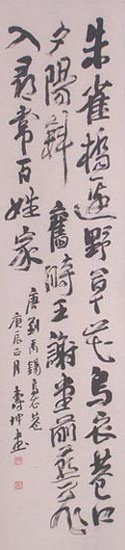 朱雀橋邊野草花烏衣巷口
夕陽斜舊時王謝堂前燕飛
入尋常百姓家
唐劉禹錫烏衣巷
庚辰正月壽坤書